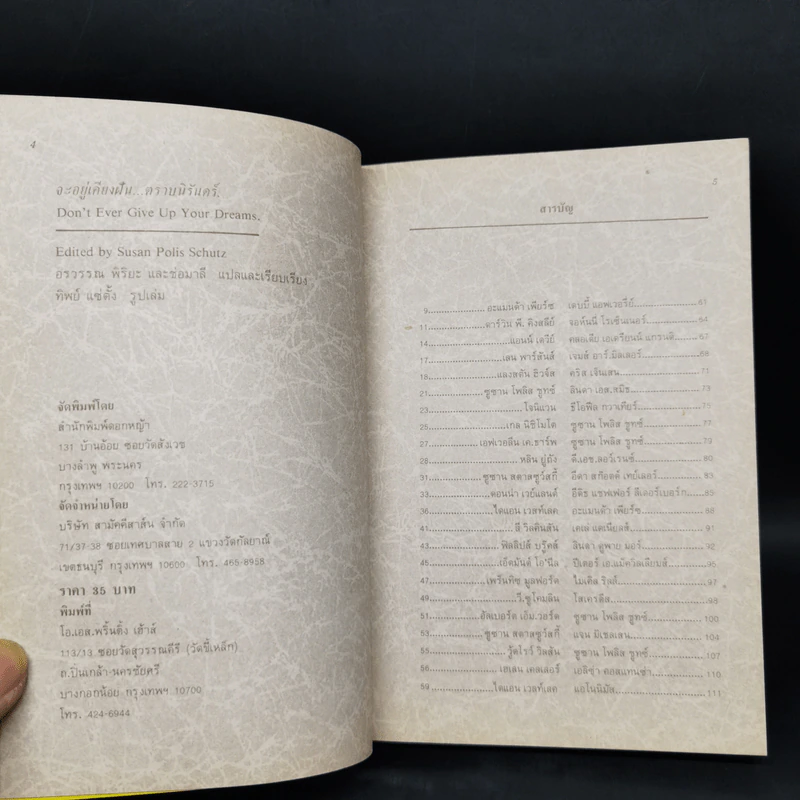 4
จะอยู่เคียงฝัน...ตราบนิรันดร์.
Don't Ever Give Up Your Dreams.
Edited by Susan Polis Schutz
อรวรรณ พิริยะ และช่อมาลี แปลและเรียบเรียง
ทิพย์ แซ่ตั้ง รูปเล่ม
จัดพิมพ์โดย
สำนักพิมพ์ดอกหญ้า
131 บ้านอ้อย ซอยวัดสังเวช
บางลำพู พระนคร
กรุงเทพฯ 10200 โทร. 222-3715
จัดจำหน่ายโดย
บริษัท สามัคคีสาส์น จำกัด
71/37-38 ซอยเทศบาลสาย 2 แขวงวัดกัลยาณ์
เขตธนบุรี กรุงเทพฯ 10600 โทร. 465-8958
ราคา 35 บาท
พิมพ์ที่
โอ.เอส.พริ้นติ้ง เฮ้าส์
113/13 ซอยวัดสุวรรณคีรี (วัดขี้เหล็ก)
ถ.ปิ่นเกล้า-นครชัยศรี
บางกอกน้อย กรุงเทพฯ 10700
โทร. 424-6944
5
สารบัญ
9 อะแมนด้า เพียร์ซ เดบบี้ แอพเวอรีย์ 61
11 ดาร์วิน พี. คิงสลีย์ จอห์นนี่ โรเซ็นเนอร์ 64
14 แอนน์ เดวีย์ คลอเดีย เอเดรียนน์ แกรนดิ 67
17 เลน พาร์สันส์ เจมส์ อาร์.มิลเลอร์ 69
18 แลงสตัน ฮิวจ์ส คริส เจ็นเสน 71
21 ซูซาน โพลิส ชูทซ์ ลินดา เอส.สมิธ 73
23 โจนิแวน ธีโอฟิล กวาเคียร์ 75
25 เกล นิชิโมโต ซูซาน โพลิส ชูทซ์ 77
27 เอฟเวอลีน เค.ธาร์พ ซูซาน โพลิส ชูทซ์ 79
28 หลิน ยู่ถัง ดี.เอช.ลอว์เรนซ์ 80
31 ซูซาน สตาสซูว์สกี้ อีดา สก๊อตต์ เทย์เลอร์ 83
33 ดอนน่า เวย์แลนด์ อีดิธ แชฟเฟอร์ ลีเดอร์เบอร์ก 85
36 ไดแอน เวสท์เลค อะแมนด้า เพียร์ซ 88
41 ลี วิลคินสัน เคเล่ แดเนียลส์ 91
43 ฟิลลิปส์ บรู๊คส์ ลินดา ดูพาย มอร์ 92
45 เอ็ดมันด์ โอ'นีล ปีเตอร์ เอ.แม็ควิลเลียมส์ 95
47 เพร้นทิซ มูลฟอร์ด ไมเคิล ริลด์ 97
49 วี.ซูโคมลิน โสเครตีส 98
51 อัลเบอร์ต เอ็ม.วอร์ด ซูซาน โพลิส ชูทซ์ 100
53 ซูซาน สตาสซูว์สกี้ แจน มิเชลเสน 104
55 วู้ดโรว์ วิลสัน ซูซาน โพลิส ชูทซ์ 107
56 เฮเลน เคลเลอร์ เอลิซ่า คอสแทนซ่า 110
59 ไดแอน เวสท์เลค แอโนนิมัส 111